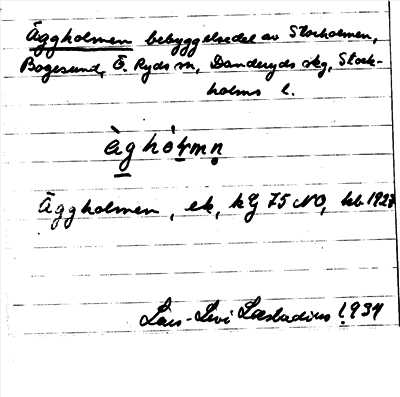 Äggholmen bebyggelsedel av Storholmen,
Bogesund, Ö. Ryds sn, Danderyds skg, Stock-
holms l.
àghòḷmṇ
Äggholmen, ek, kg 75 NO, hb 1927
Lars-Levi Læstadius 1934